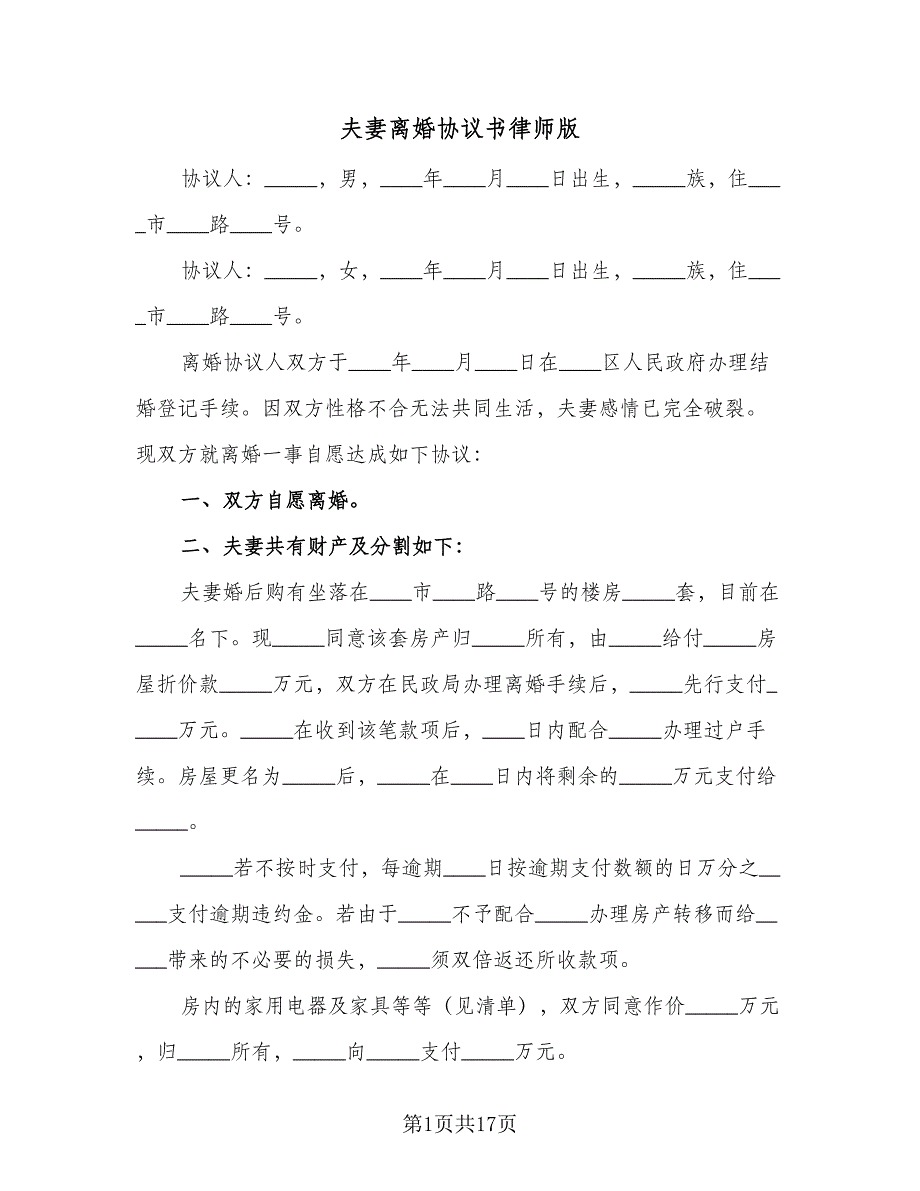 夫妻离婚协议书律师版
协议人：_____，男，____年____月____日出生，_____族，住___
_市____路____号。
协议人：_____，女，____年____月____日出生，_____族，住___
_市____路____号。
离婚协议人双方于____年____月____日在____区人民政府办理结
婚登记手续。因双方性格不合无法共同生活，夫妻感情已完全破裂。
现双方就离婚一事自愿达成如下协议：
一、双方自愿离婚。
二、夫妻共有财产及分割如下：
夫妻婚后购有坐落在____市____路____号的楼房_____套，目前在
_____名下。现_____同意该套房产归_____所有，由_____给付_____房
屋折价款_____万元，双方在民政局办理离婚手续后，_____先行支付_
____万元。_____在收到该笔款项后，____日内配合_____办理过户手
续。房屋更名为_____后，_____在____日内将剩余的_____万元支付给
_____。
_____若不按时支付，每逾期____日按逾期支付数额的日万分之__
___支付逾期违约金。若由于_____不予配合_____办理房产转移而给__
___带来的不必要的损失，_____须双倍返还所收款项。
房内的家用电器及家具等等（见清单），双方同意作价_____万元
，归_____所有，_____向_____支付_____万元。
第1页共17页